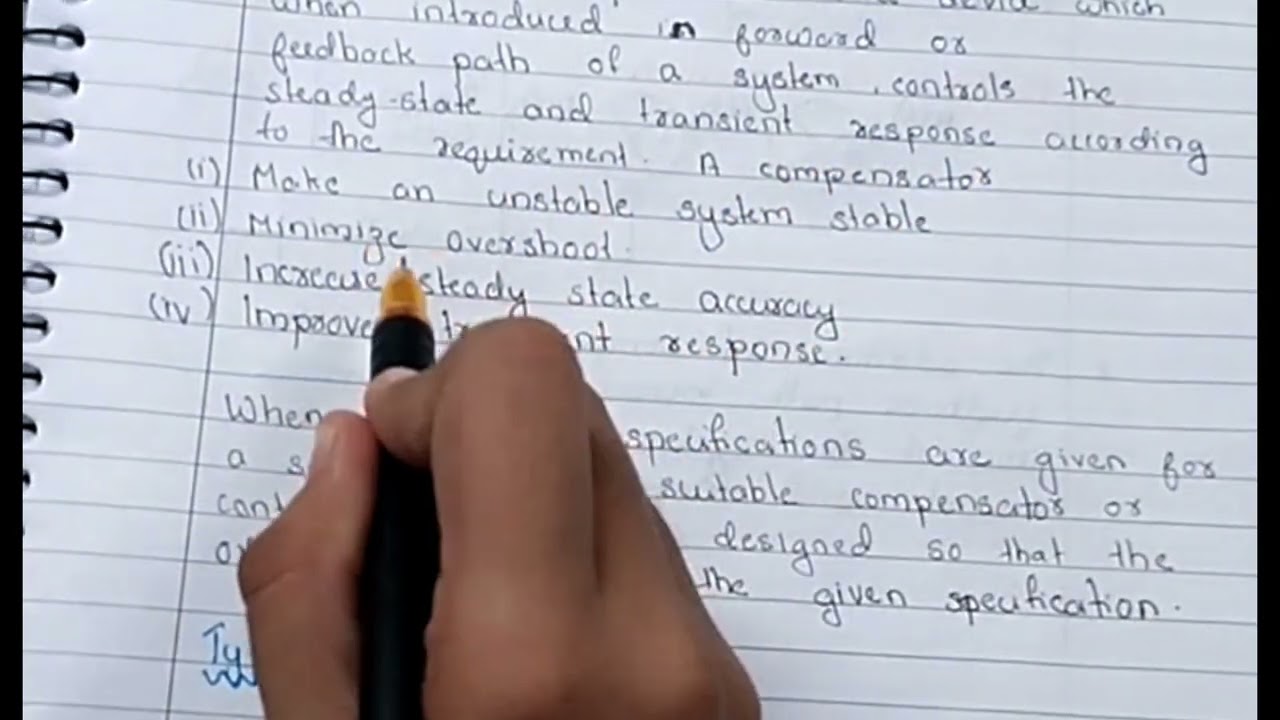 when introduced in forward or
feedback path of a system, controls the
steady-state and transient response according
to the requirement. A compensator
(i) Make an unstable system stable
(ii) Minimize overshoot.
(iii) Increase steady state accuracy
(iv) Improve response.
When specifications are given for
a
suitable compensator or
designed so that the
the given specification.